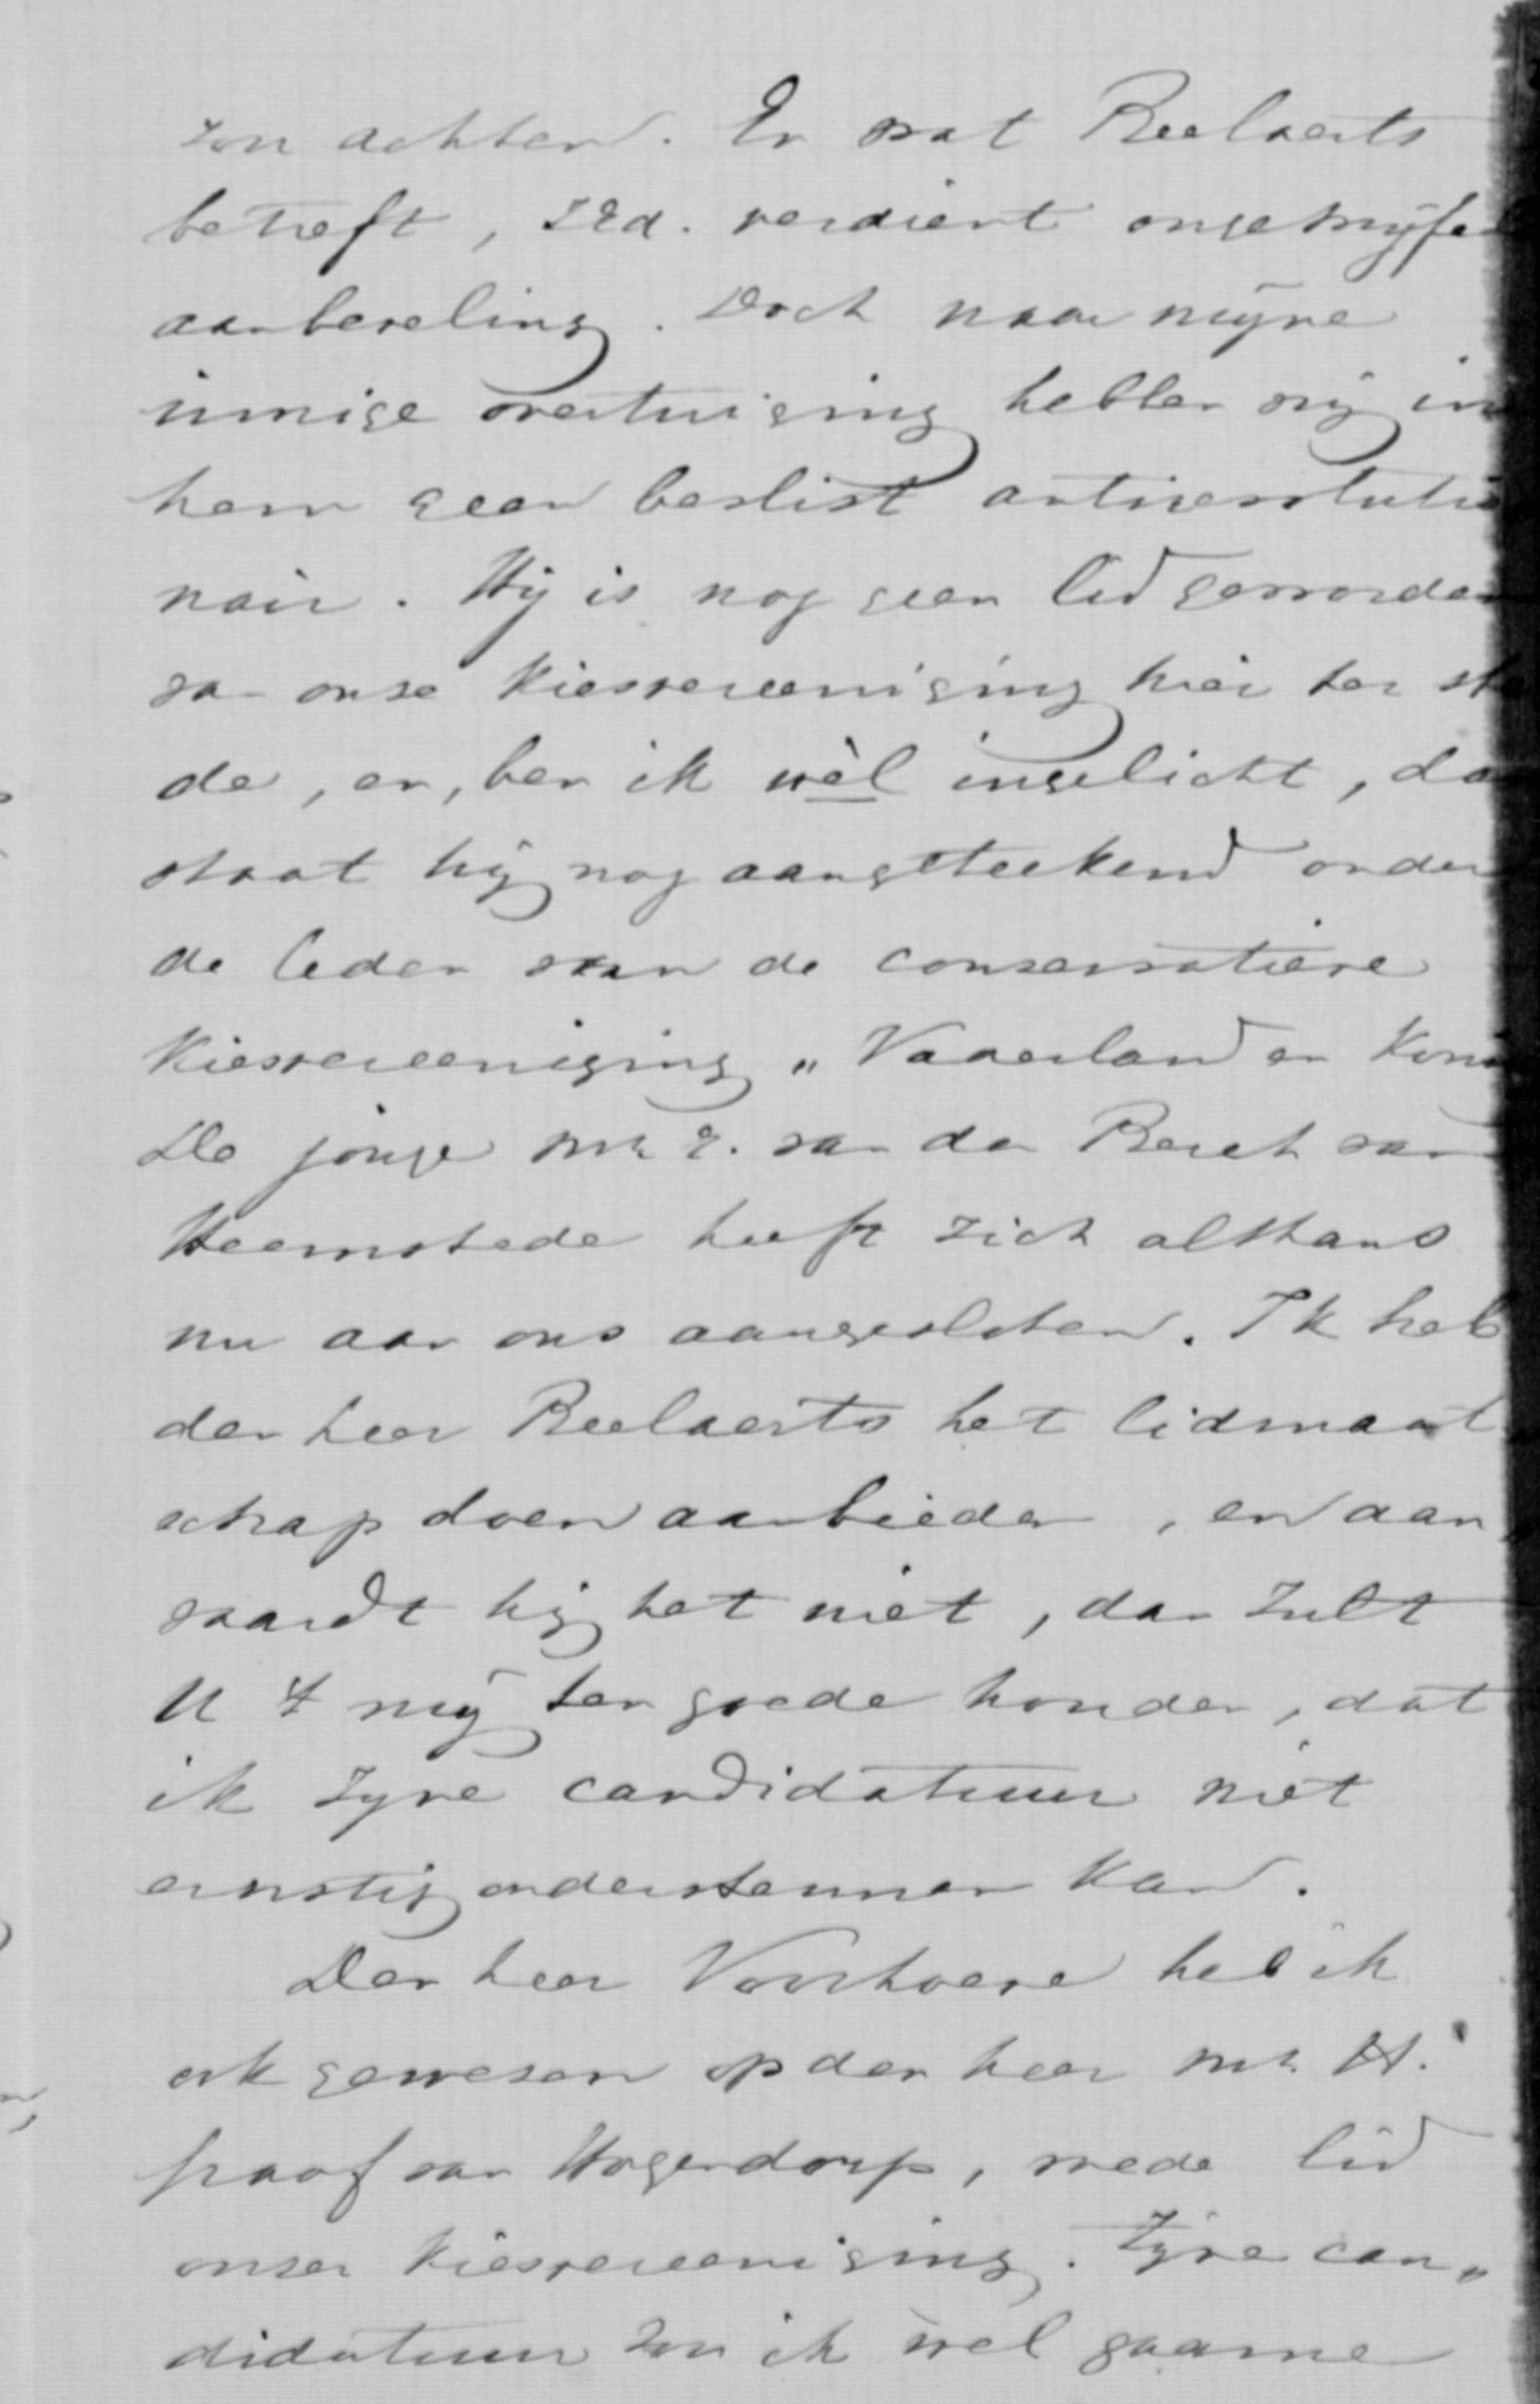 zou achten. En wat Beelaerts
betreft, ZEd. verdient ongetwijfel
aanbeveling. Doch naar mijne
innige overtuiging hebben wij in
hem geen beslist antirevolutio
nair. Hij is nog geen lid geworden
van onze kiesvereeniging hier ter ste
de, en, ben ik wèl ingelicht, dan
staat hij nog aangeteekend onder
de leden van de conservatieve
kiesvereeniging „Vaderland en Koni
De jonge mr. E. van den Berch van
Heemstede heeft zich althans
nu aan ons aangesloten. Ik heb
den heer Beelaerts het lidmaat
schap doen aanbieden, en aan
vaardt hij het niet, dan zult
U 't mij ten goede houden, dat
ik zijne candidatuur niet
ernstig ondersteunen kan.
Den heer Voorhoeve heb ik
ook gewezen op den heer mr. H.
graaf van Hogendorp, mede lid
onzer kiesvereeniging. Zijne can„
didatuur zou ik wel gaarne